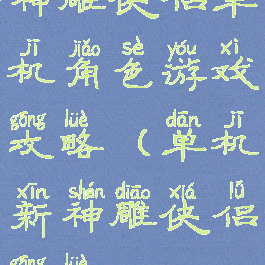 神雕侠侣单
jī jiǎo sè yóu xì
机角色游戏
gōng lüè dān jī
攻略（单机
xīn shén diāo xiá lǚ
新神雕侠侣
gōng lüè